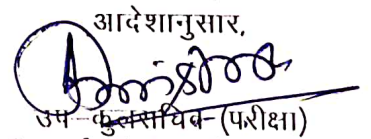 आदेशानुसार,
उप-कुलसचिव-(परीक्षा)